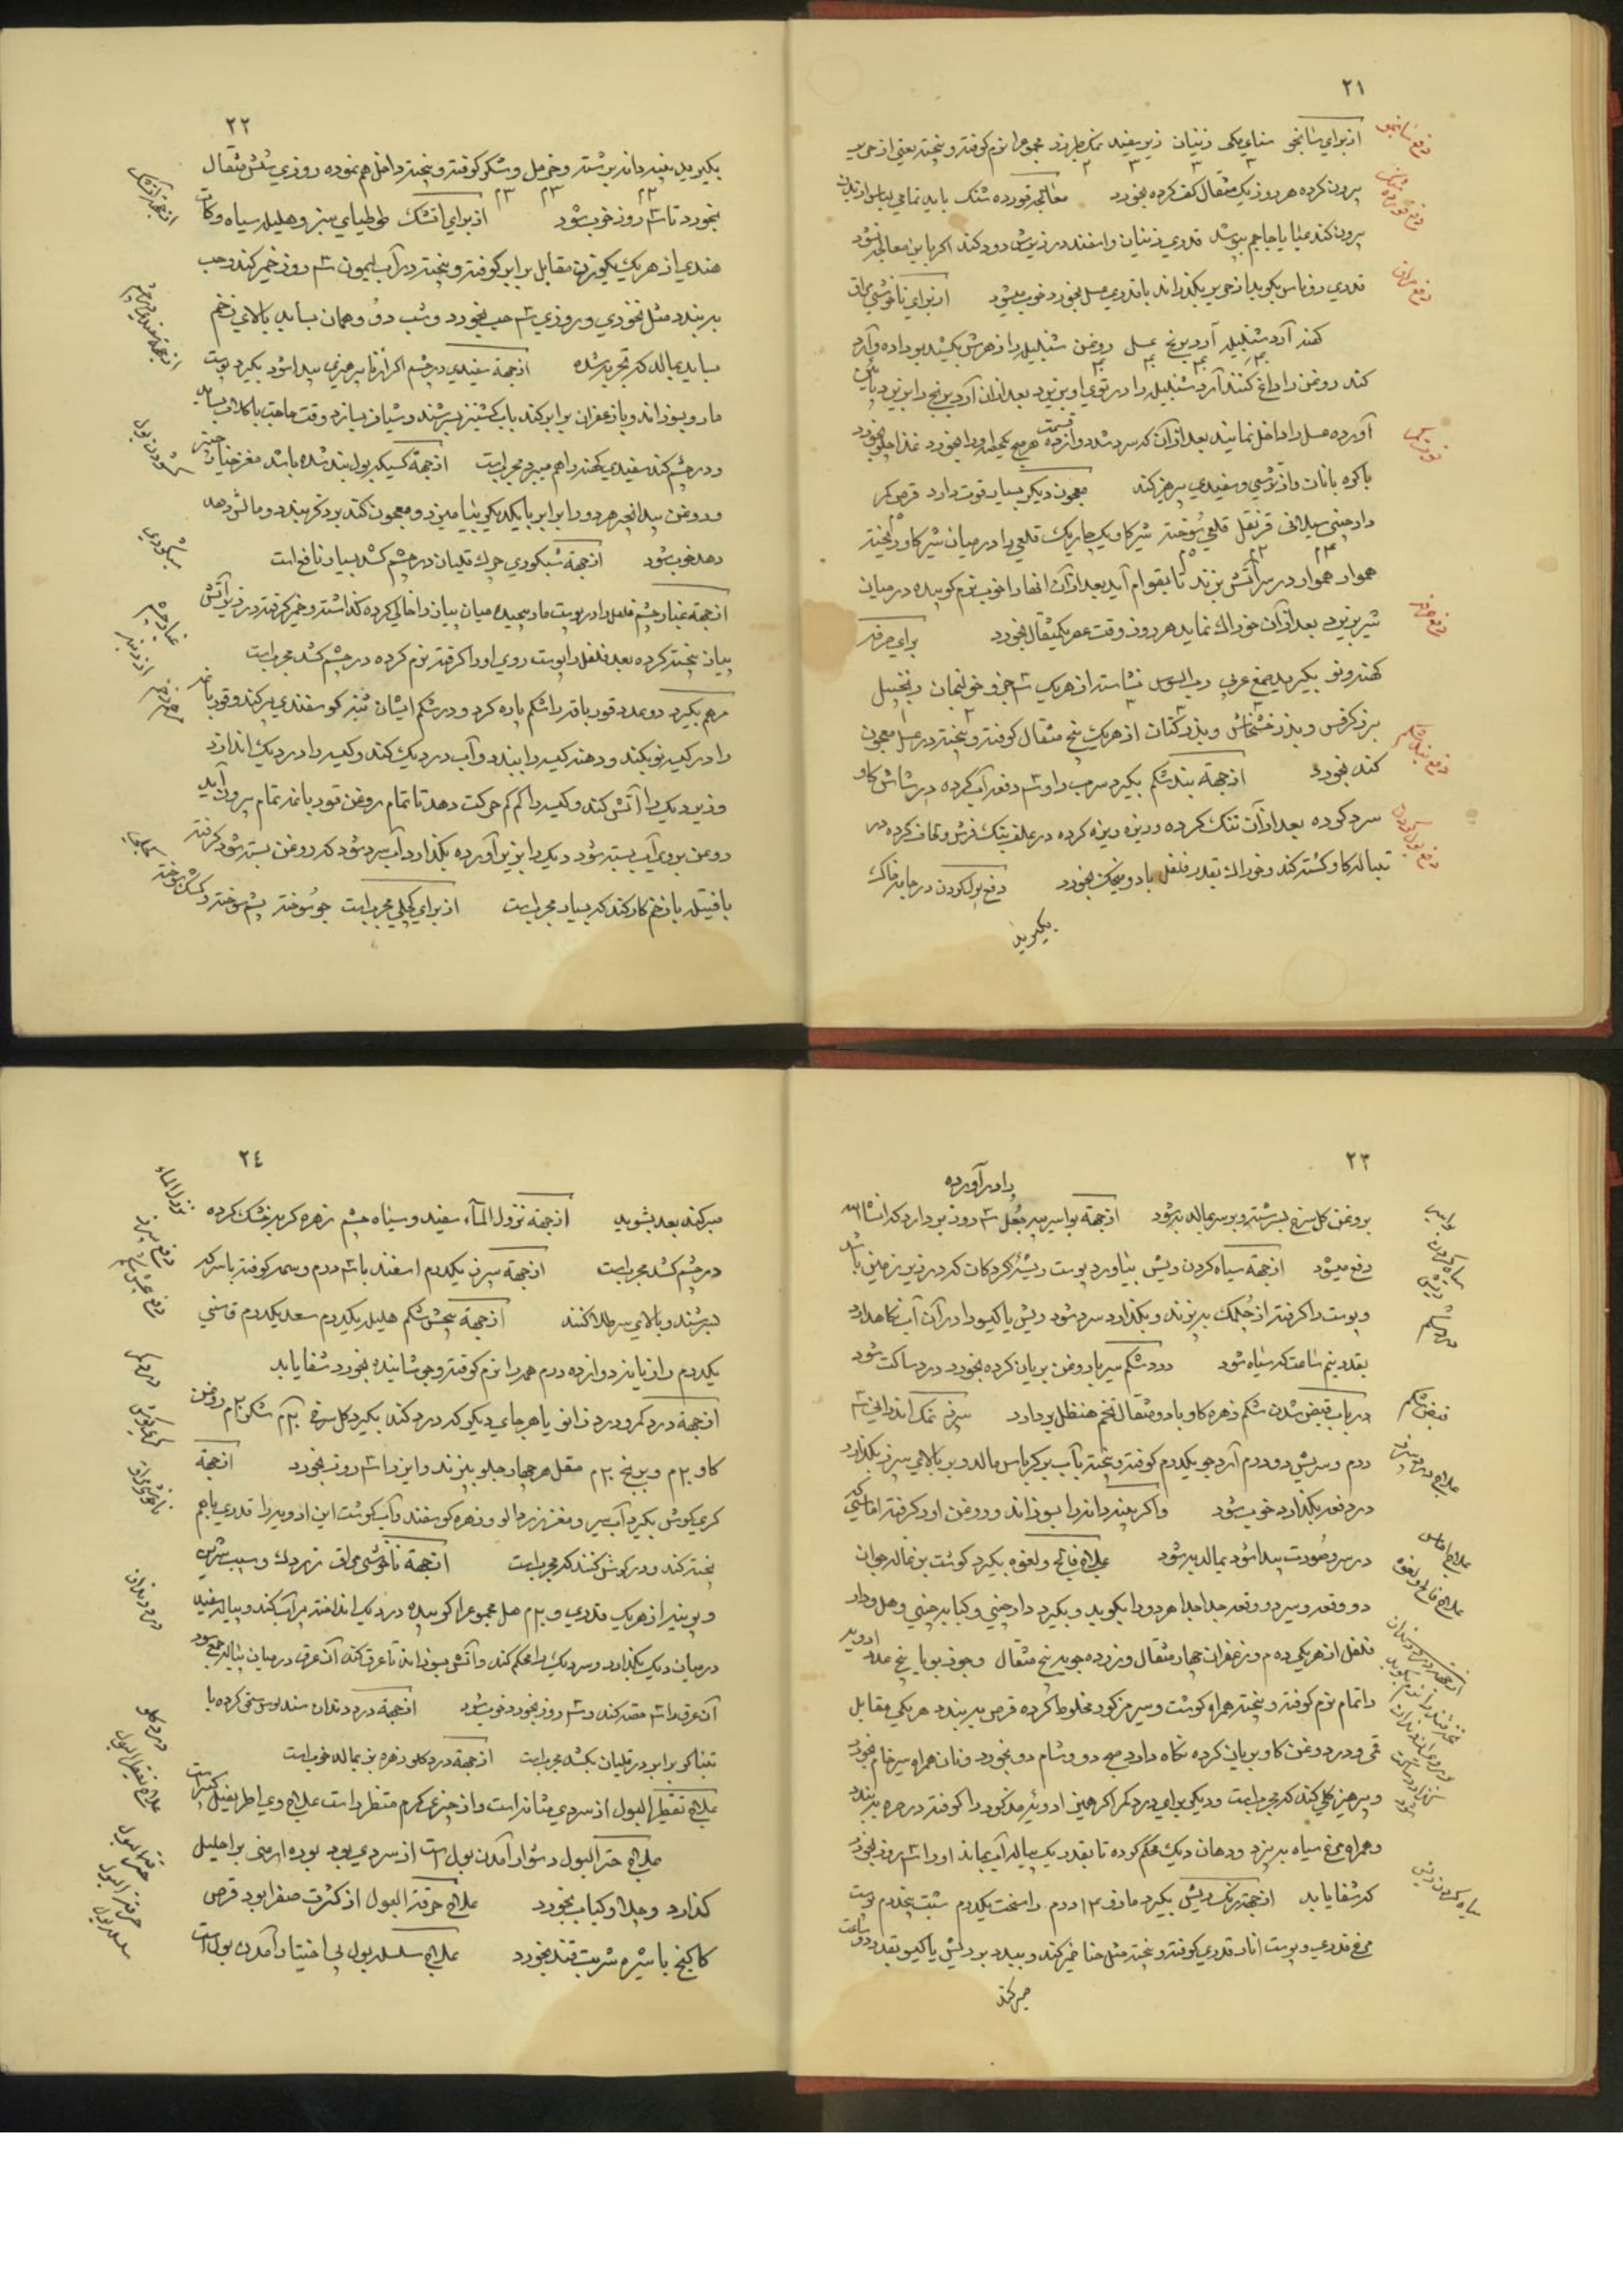 ٢١
از برای شانجو سنای مکی زنیان زیره سفید نمک طبرزد مجموع را نرم کوفته و بیخته یعنی از حریر
بیرون کرده هر روز یک مثقال کف کرده بخورد معالجه قورده شنک باید تمامی لباس از بدن
بیرون کند عبا یا جاجم بپوشد قدری زنیان و اسفند در زیرش دود کند اکر باین معالجه نشود
قدری روناس بکوبد از حریر بکذراند با قدری عسل بخورد خوب میشود از برای ناخوشی مراق
کهنه آرد شنبلیله آرد برنج عسل روغن شنبلیله را از هرش بکیشد بو داده و آرد
کند روغن را داغ کنند آرد شنبلیله را در توی او بریزد بعد از آن آرد برنج را بریزد پائین
آورده عسل را داخل نمایند بعد از آن که سرد شد دوازده قسمت هر صبح یکی را بخورد غذا چلو بخورد
با کره با نان و از ترشی و سفیدی پرهیز کند معجون دیکر بسیار قوت دارد قرص کمر
دارچینی سیلانی قرنفل قلعی سُوخته شیر کاو یک چاریک قلعی را در میان شیر کاو ریخته
هموار هموار در سر آتش بزند تا بقوام آید بعد از آن انها را خوب نرم کوبیده در میان
شیر بریزد بعد از آن خوراک نماید هر روز وقت عصر یکمثقال بخورد برای سرفه
کهنه و نو بکیرید صمغ عربی رب السوس نشاسته از هر یک ٣ جزو خولنجان زنجبیل
بزر کرفس و بذر خشخاش و بذر کتان از هر یک پنج مثقال کوفته و بیخته در عسل معجون
کند بخورد از جهة بند شکم بکیرد سرب را و ٣ دفعه آب کرده در شاش کاو
سرد کرده بعد از آن تنک کرده و ریزه ریزه کرده در علف
تپاله کاو کشته کند و خوراک بقدر فلفل با دو میخک بخورد دفع بول کردن در جامه خاک
بکیرید
دفع شانجو
دفع قورده شنک
دفع مراق
قوة کمر
دفع سرفه
دفع بند شکم
دفع بول کردن
٢٢
بکیرید بید انجیر دانه برشته و خرمل و شکر کوفته و بیخته داخل هم نموده روزی شش مثقال
بخورد تا ٣ روز خوب شود از برای اتشک طوطیای سبز و هلیله سیاه و کات
هندی از هر یک یکوزن مقابل برابر کوفته و بیخته در آب لیمون ٣ روز خمیر کند و حب
ببندد مثل نخودی و روزی ٣ حب بخورد و شب دو و همان بساید بالای زخم
بساید بمالد که تجربه شده از جهة سفیدی در چشم اکر پیدا شود بکیرد پوست
مار و بسوزاند و با زعفران برابر کند باب کشنیز بسرشند و شیاف بسازد وقت حاجت با کلاب بساید
و در چشم کند سفیدی کهنه را هم میبرد مجرب است از جهة کسیکه بول بند شده باشد مغز خیار چنبر
و روغن بید انجیر هر دو را برابر با یکدیکر بیامیزد و معجون کند بر ذکر ببندد و مالش دهد
دهد خوب شود از جهة شبکوری چرک قلیان در چشم کشد بسیار نافع است
از جهة غبار چشم فلفل را در پوست مار پیچیده میان پیاز را خالی کرده کذاشته و خمیر کرفته در زیر آتش
پیاز پخته کرده بعد فلفل را پوست روی او را کرفته نرم کرده در چشم کشد مجرب است
مرهم بکیرد دو عدد قورباقه را شکم پاره کرد و در شکم ایشان پنبه کوسفندی پر کند و قورباغه
را در کیسه نو بکند و دهنه کیسه را ببندد و آب در دیک کند و کیسه را در دیک اندازد
و زیر دیک را آتش کند و کیسه را کم کم حرکت دهد تا تمام روغن قورباغه تمام بیرون آید
روغن بروی آب بسته شود دیک را بزیر آورده بکذارد آب سرد شود که روغن بسته شود کرفته
با فتیله با زخم کار کند که بسیار مجرب است از برای کچلی مجرب است جو سُوخته پشم سوخته و کشک سوخته
از جهة آتشک
از جهة سفیدی در چشم
کشودن بول
شبکوری
غبار چشم
مرهم زخم
کچلی
٢٣
را در آورده
بروغن کل سرخ بسرشته و بر سر بماله به شود از جهة بواسیر پیه جُعل ٣ روز بر دارد که انشاالله
دفع میشود از جهة سیاه کردن ریش بیاورد پوست ریشه کردکان که در زیر زمین باشد
و پوست را کرفته از چُلمک بپزند و بکذارد سرد شود ریش یا کیسو را در آن آب نکاهدارد
بقدر نیم ساعت که سیاه شود درد شکم سیر با روغن بریان کرده بخورد درد ساکت شود
در باب قبض شدن شکم زهره کاو با دو مثقال تخم هنظل بر دارد سپرز نمک اندرانی ٣
درم و سریش دو درم آرد جو یکدرم کوفته و بیخته بآب بر کرباس مالد و بر بالای سپرز بکذارد
در دفعه بکذارد خوب شود و اکر بید دانه را بسوزاند و روغن او را کرفته اماسی که
در سر و صورت پیدا شود بمالد به شود علاج فالج و لقوه بکیرد کوشت بز نماله جوان
دو وقعه و سیر دو وقعه جدا جدا هر دو را بکوبد و بکیرد دارچینی و کبابه چینی و هل و دار
فلفل از هر یکی ده م و زعفران چهار مثقال و زرده چوبه پنج مثقال و جوز بویا پنج عدد ادویه
را تمام نرم کوفته و بیخته همراه کوشت و سیر مزکور مخلوط کرده قرص ببندد هر یکی مقابل
قی و در روغن کاو بریان کرده نکاه دارد صبح دو و شام دو بخورد و نان همراه سیر خام بخورد
و پرهیز کلی کند که مجرب است و دیکر برای درد کمر اکر همین ادویه مذکور را کوفته در خرقه ببندد
و همراه مرغ سیاه بپزد و دهان دیک محکم کرده تا بقدر یک پیاله آب بماند او را ٣ روز بخورد
که شفا یابد از جهة رنک ریش بکیرد مازو ١٣ درم راسخت یکدرم شب پنجدرم پوست
مرغ قدری و پوست انار قدری کوفته و بیخته مثل حنا خمیر کند و ببندد بر ریش یا کیسو بقدر دو ساعت
صبر کند
بواسیر
سیاه کردن ریش
درد شکم
قبض شکم
علاج درد سپرز
علاج اماس
علاج فالج و لقوه
سیاه کردن ریش
٢٤
صبر کند بعد بشوید از جهة نزول المآء سفید و سیاه چشم زهره کربه خشک کرده
در چشم کشد مجرب است از جهة سپرز یکدرم اسفند با ٣ درم کوفته با سرکه
بسرشند و بالای سپر طلا کنند از جهة پیچش شکم هلیله یکدرم سعد یکدرم
یکدرم رازیانه دوازده درم همه را نرم کوفته و جوشانیده بخورد شفا یابد
از جهة درد کمر و درد زانو یا هر جای دیکر که درد کند بکیرد کل سرخ ٣٠م شکر ٣٠م روغن
کاو ٣٠م و برنج ٣٠م مقل هر چهار چلو بپزند و این را ٣ روز بخورد از جهة
کری کوش بکیرد آب سیر و مغز زردالو و زهره کوسفند و آب کوشت این ادویه را قدری با هم
پخته کند و در کوش کنند که مجرب است از جهة ناخوشی مراق زردک و سیب شیرین
در میان دیک بکذارد و سر دیک را محکم کند و آتش بسوزاند تا عرق کند آن عرق در میان پیاله جمع شود
آن عرق را ٣ حصه کند و ٣ روز بخورد خوب شود از جهة درد دندان سندلوس سحق کرده با
تنباکو برابر در قلیان بکشد مجرب است از جهة درد کلو زهره بز بماله خوب است
علاج تقطیر البول از سردی مثانه است و از چیزی کرم منتظر است علاج وی اطریفل کبیر است
علاج حبر البول دشوار آمدن بول است از سردی بود بوره ارمنی بر احلیل
کذارد و جلاو کباب بخورد علاج حرقة البول از کثرت صفرا بود قرص
کاکنج با شیره شربت قند بخورد علاج سلسله بول بی اختیار آمدن بول است
نزول الماء
دفع سپرز
دفع پیچش شکم
درد کمر
کری کوش
ناخوشی مراق
درد دندان
درد کلو
علاج تقطیر البول
حبر البول
حرقة البول
سلسله بول